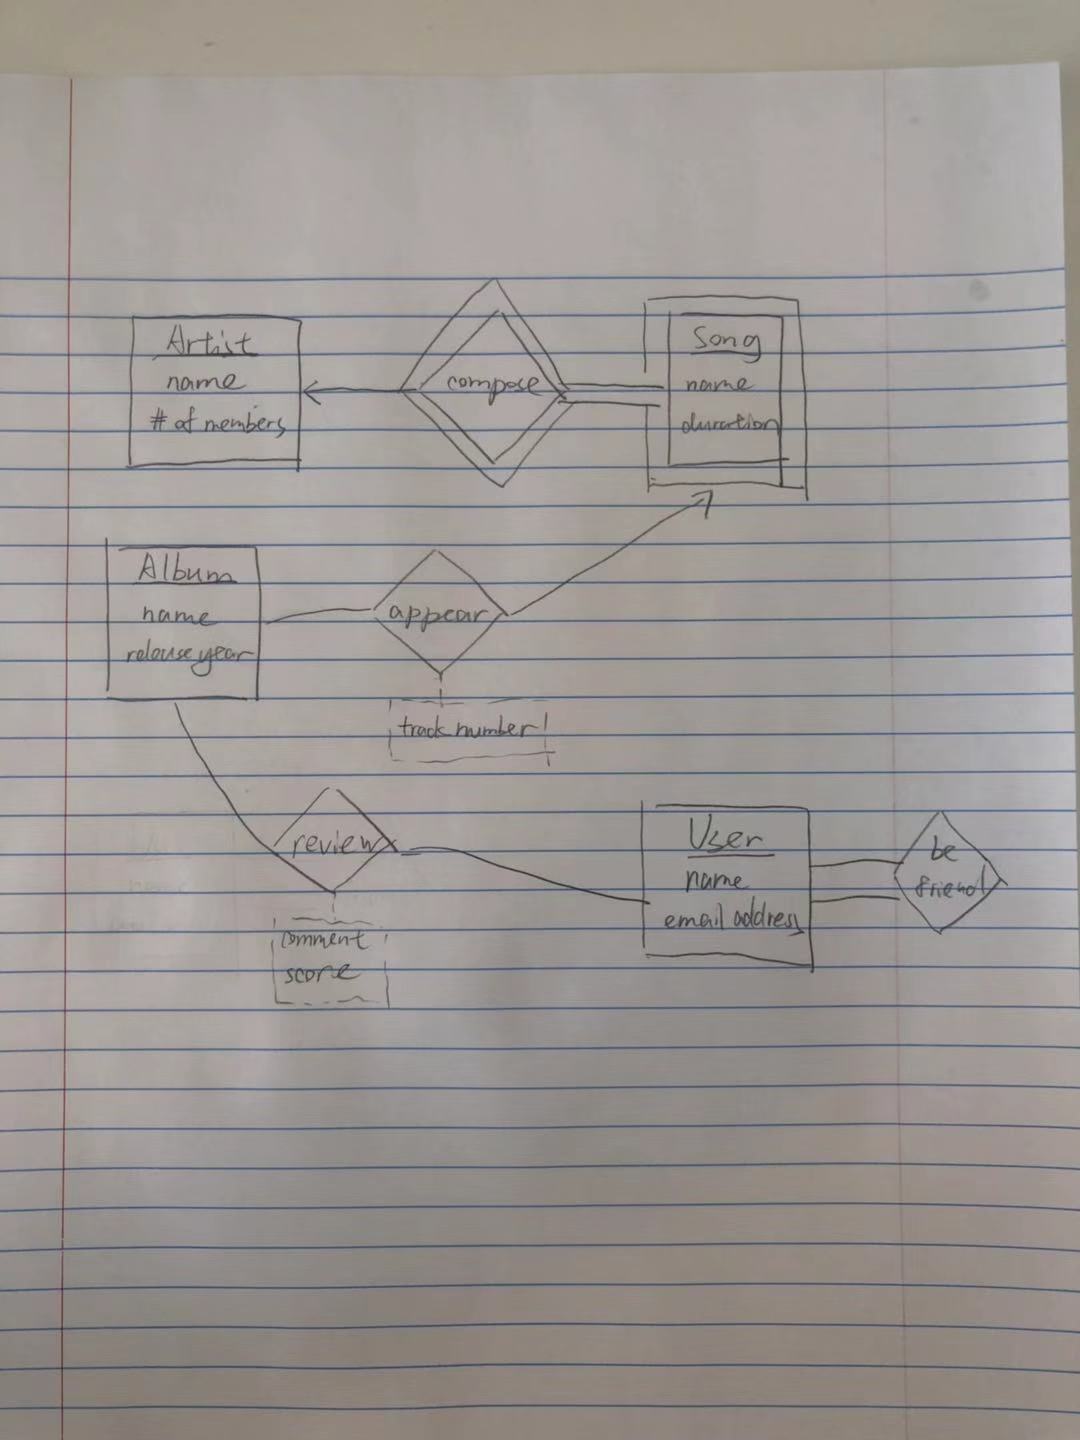 Artist
name
# of members
compose
Song
name
duration
Album
name
relouse year
appear
track number
review
comment
score
User
name
email address
be
friend